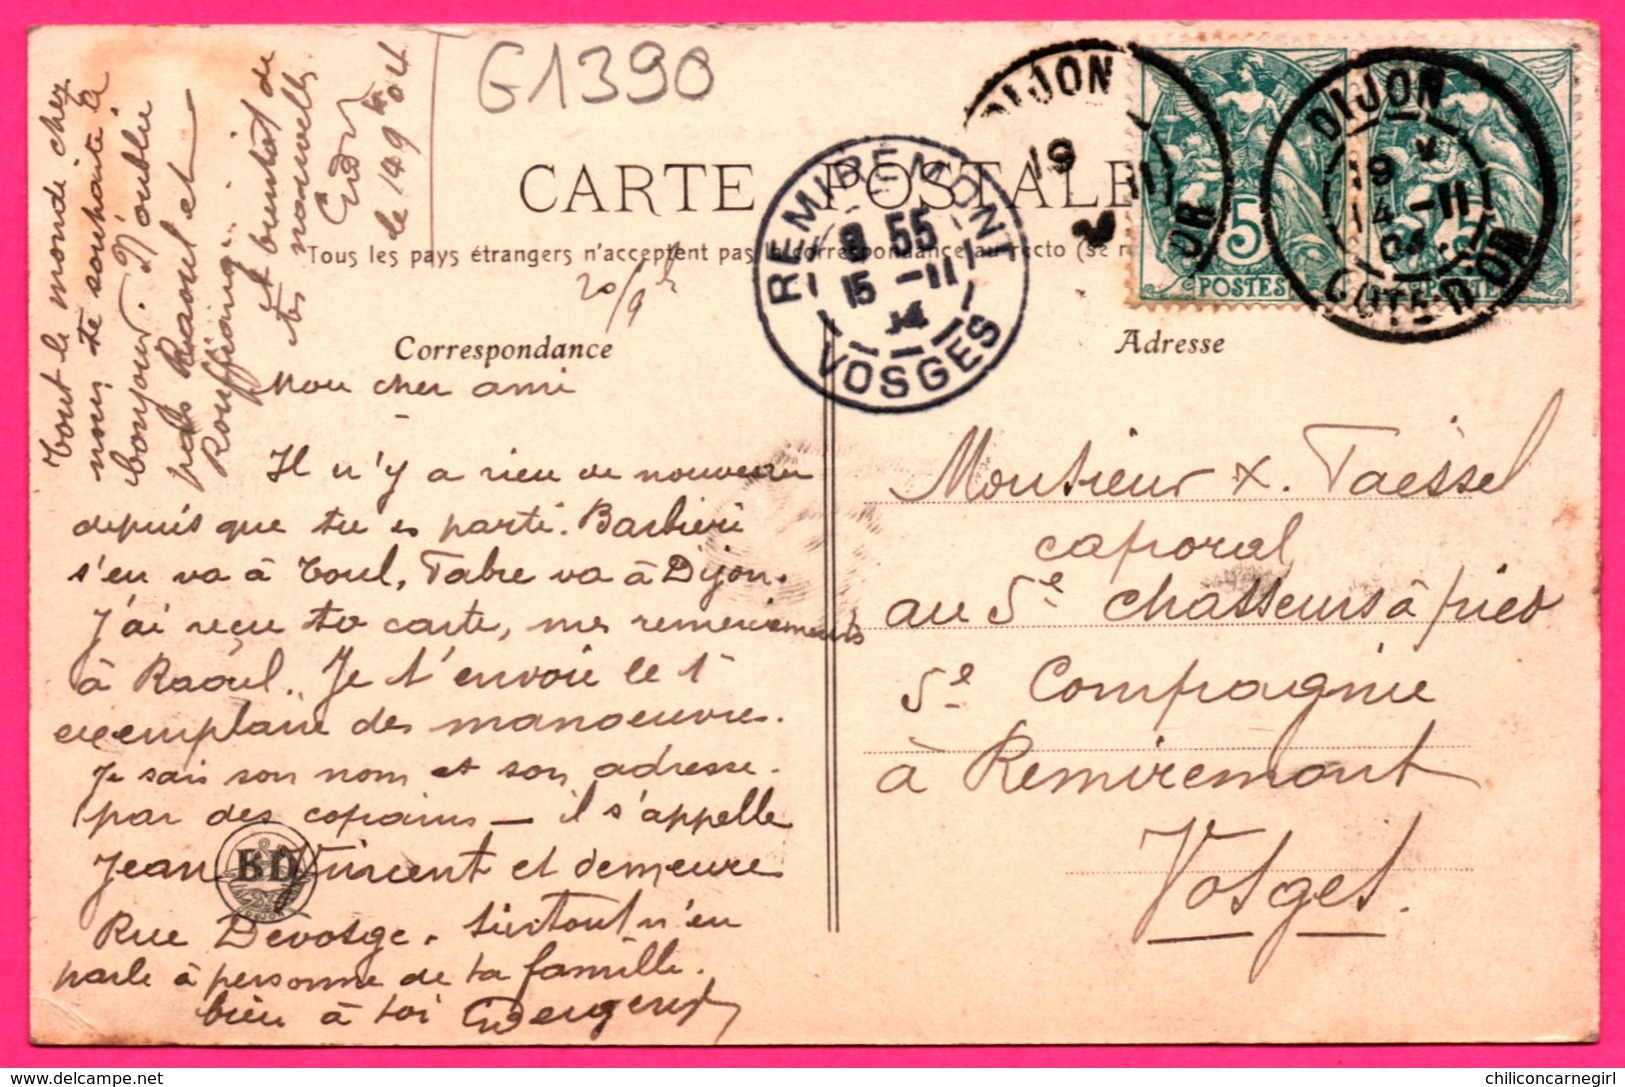 G1390
CARTE POSTALE
Tous les pays étrangers n'acceptent pas la correspondance au recto (se r
DIJON
19
11
OR
DIJON
19
14 -11
04
COTE-D'OR
5
POSTES
5
POSTES
REMIREMONT
8 55
15 -11
04
VOSGES
20/9
Correspondance
Adresse
Mon cher ami
Il n'y a rien de nouveau
depuis que tu es parti. Barbieri
s'en va à Toul, Fabre va à Dijon.
J'ai reçu ta carte, mes remerciements
à Raoul. Je t'envoie le 1r
exemplaire des manoeuvre.
Je sais son nom et son adresse
par des copains — il s'appelle
Jean Vincent et demeure
Rue Devosge. Surtout n'en
parle à personne de ta famille.
bien à toi
Tout le monde chez
nous te souhaite le
bonjour. N'oublie
pas Raoul et
et bientôt de
tes nouvelles.
le 14 9bre 04
BD
Monsieur X. Taessel
caporal
au 5e chasseurs à pied
5e Compagnie
à Remiremont
Vosges.
chiliconcarnegirl / delcampe.net